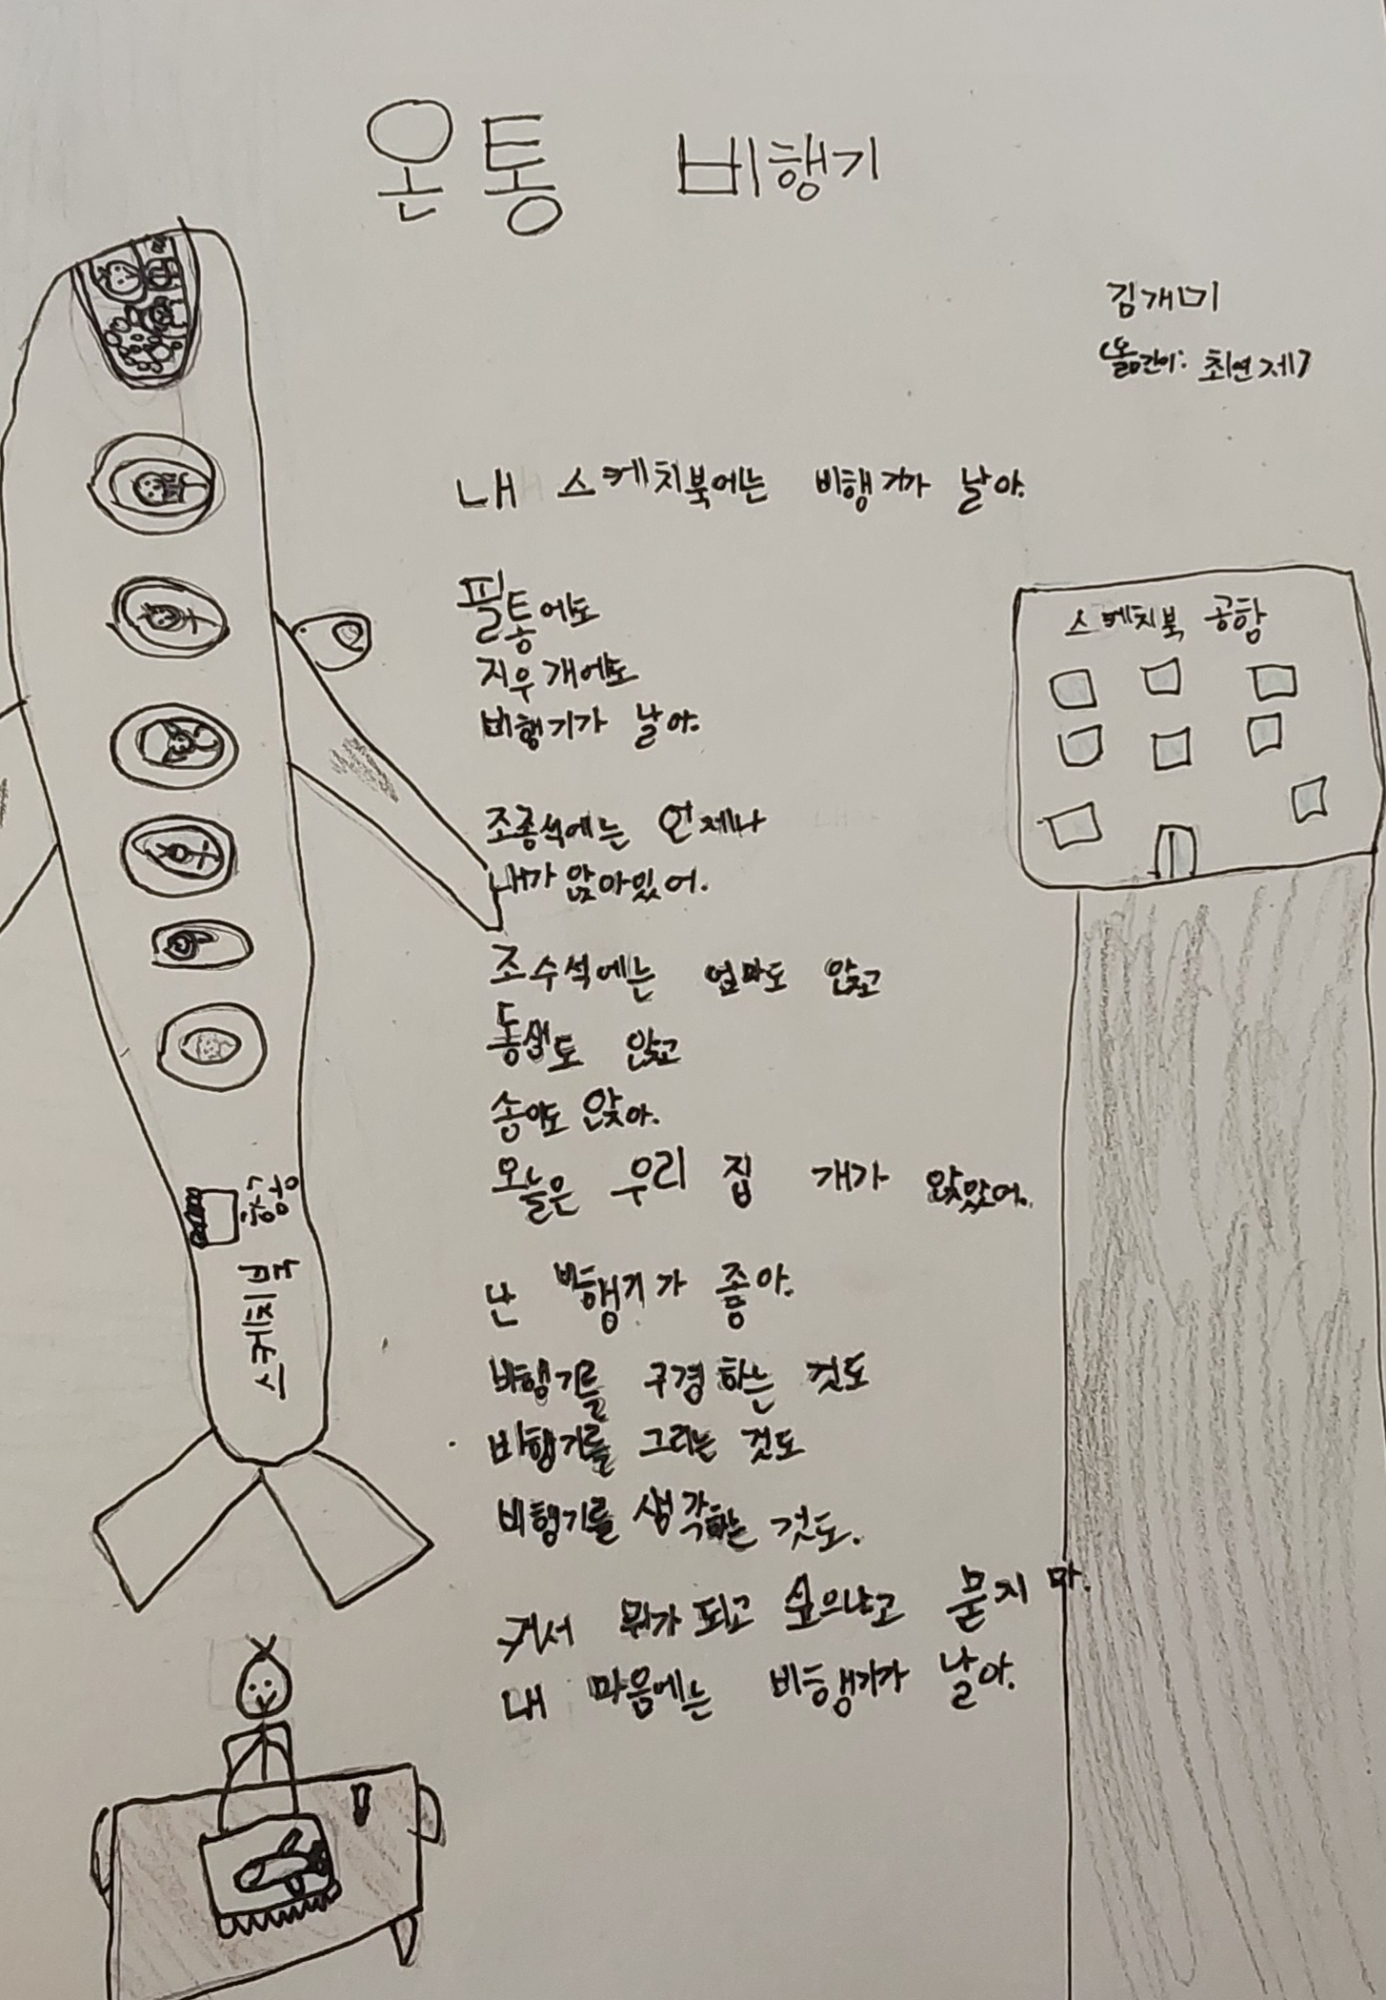 온통 비행기
김개미
(옮긴이: 최연제)
내 스케치북에는 비행기가 날아.
필통에도
지우개에도
비행기가 날아.
조종석에는 언제나
내가 앉아있어.
조수석에는 엄마도 앉고
동생도 앉고
송이도 앉아.
오늘은 우리 집 개가 앉았어.
난 비행기가 좋아.
비행기를 구경하는 것도
비행기를 그리는 것도
비행기를 생각하는 것도.
커서 뭐가 되고 싶으냐고 묻지 마.
내 마음에는 비행기가 날아.
스케치북 공항
스케치북
항공